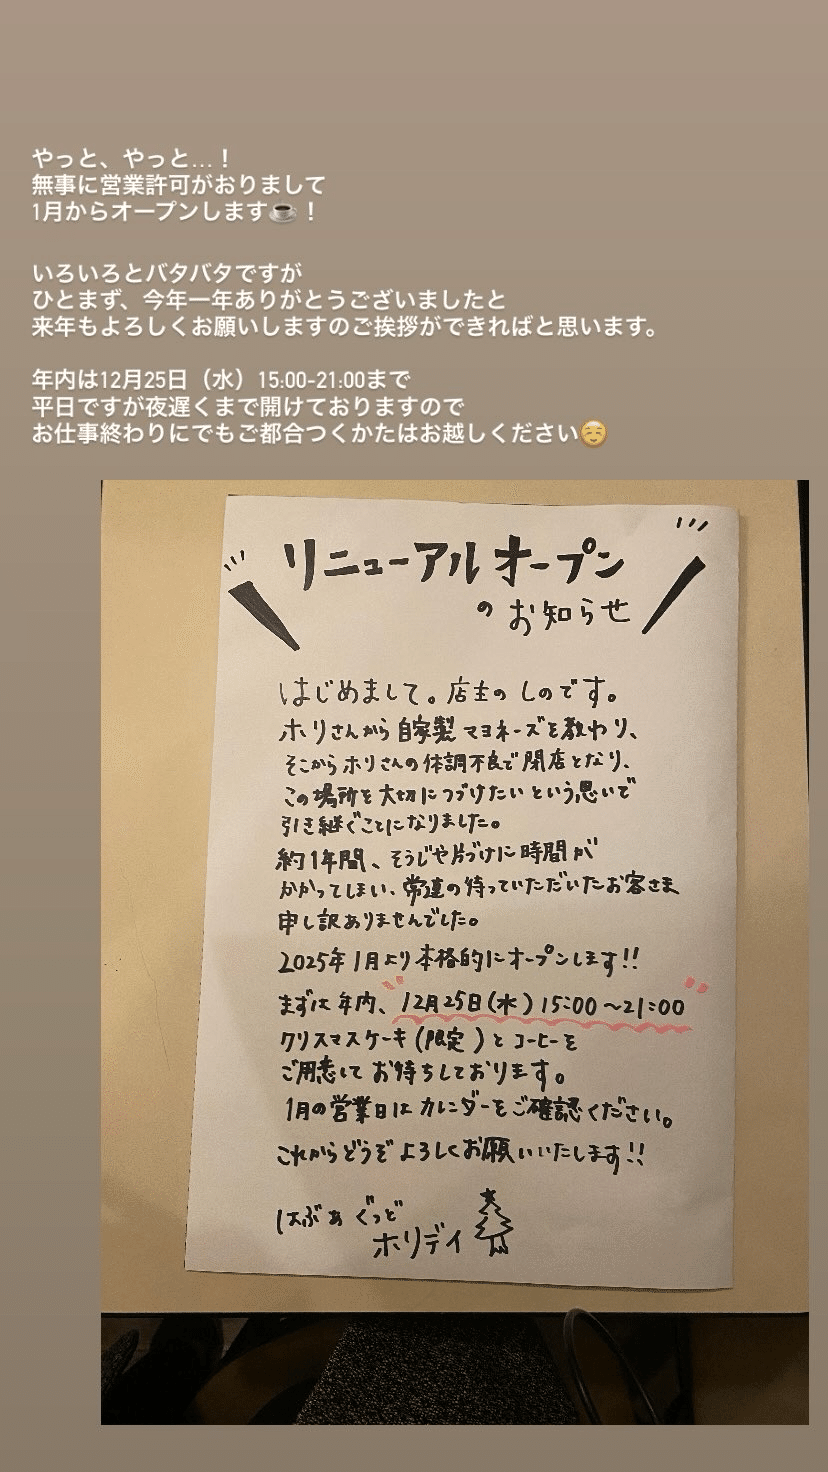 やっと、やっと…！
無事に営業許可がおりまして
1月からオープンします☕️！
いろいろとバタバタですが
ひとまず、今年一年ありがとうございましたと
来年もよろしくお願いしますのご挨拶ができればと思います。
年内は12月25日（水）15:00-21:00まで
平日ですが夜遅くまで開けておりますので
お仕事終わりにでもご都合つくかたはお越しください☺️
リニューアルオープン
のお知らせ
はじめまして。店主のしのです。
ホリさんから自家製マヨネーズを教わり、
そこからホリさんの体調不良で閉店となり、
この場所を大切につづけたいという思いで
引き継ぐことになりました。
約1年間、そうじや片づけに時間が
かかってしまい、常連の待っていただいたお客さま
申し訳ありませんでした。
2025年1月より本格的にオープンします!!
まずは年内、12月25日(水)15:00〜21:00
クリスマスケーキ(限定)とコーヒーを
ご用意してお待ちしております。
1月の営業日はカレンダーをご確認ください。
これからどうぞよろしくお願いいたします!!
はぶあぐっど
ホリデイ